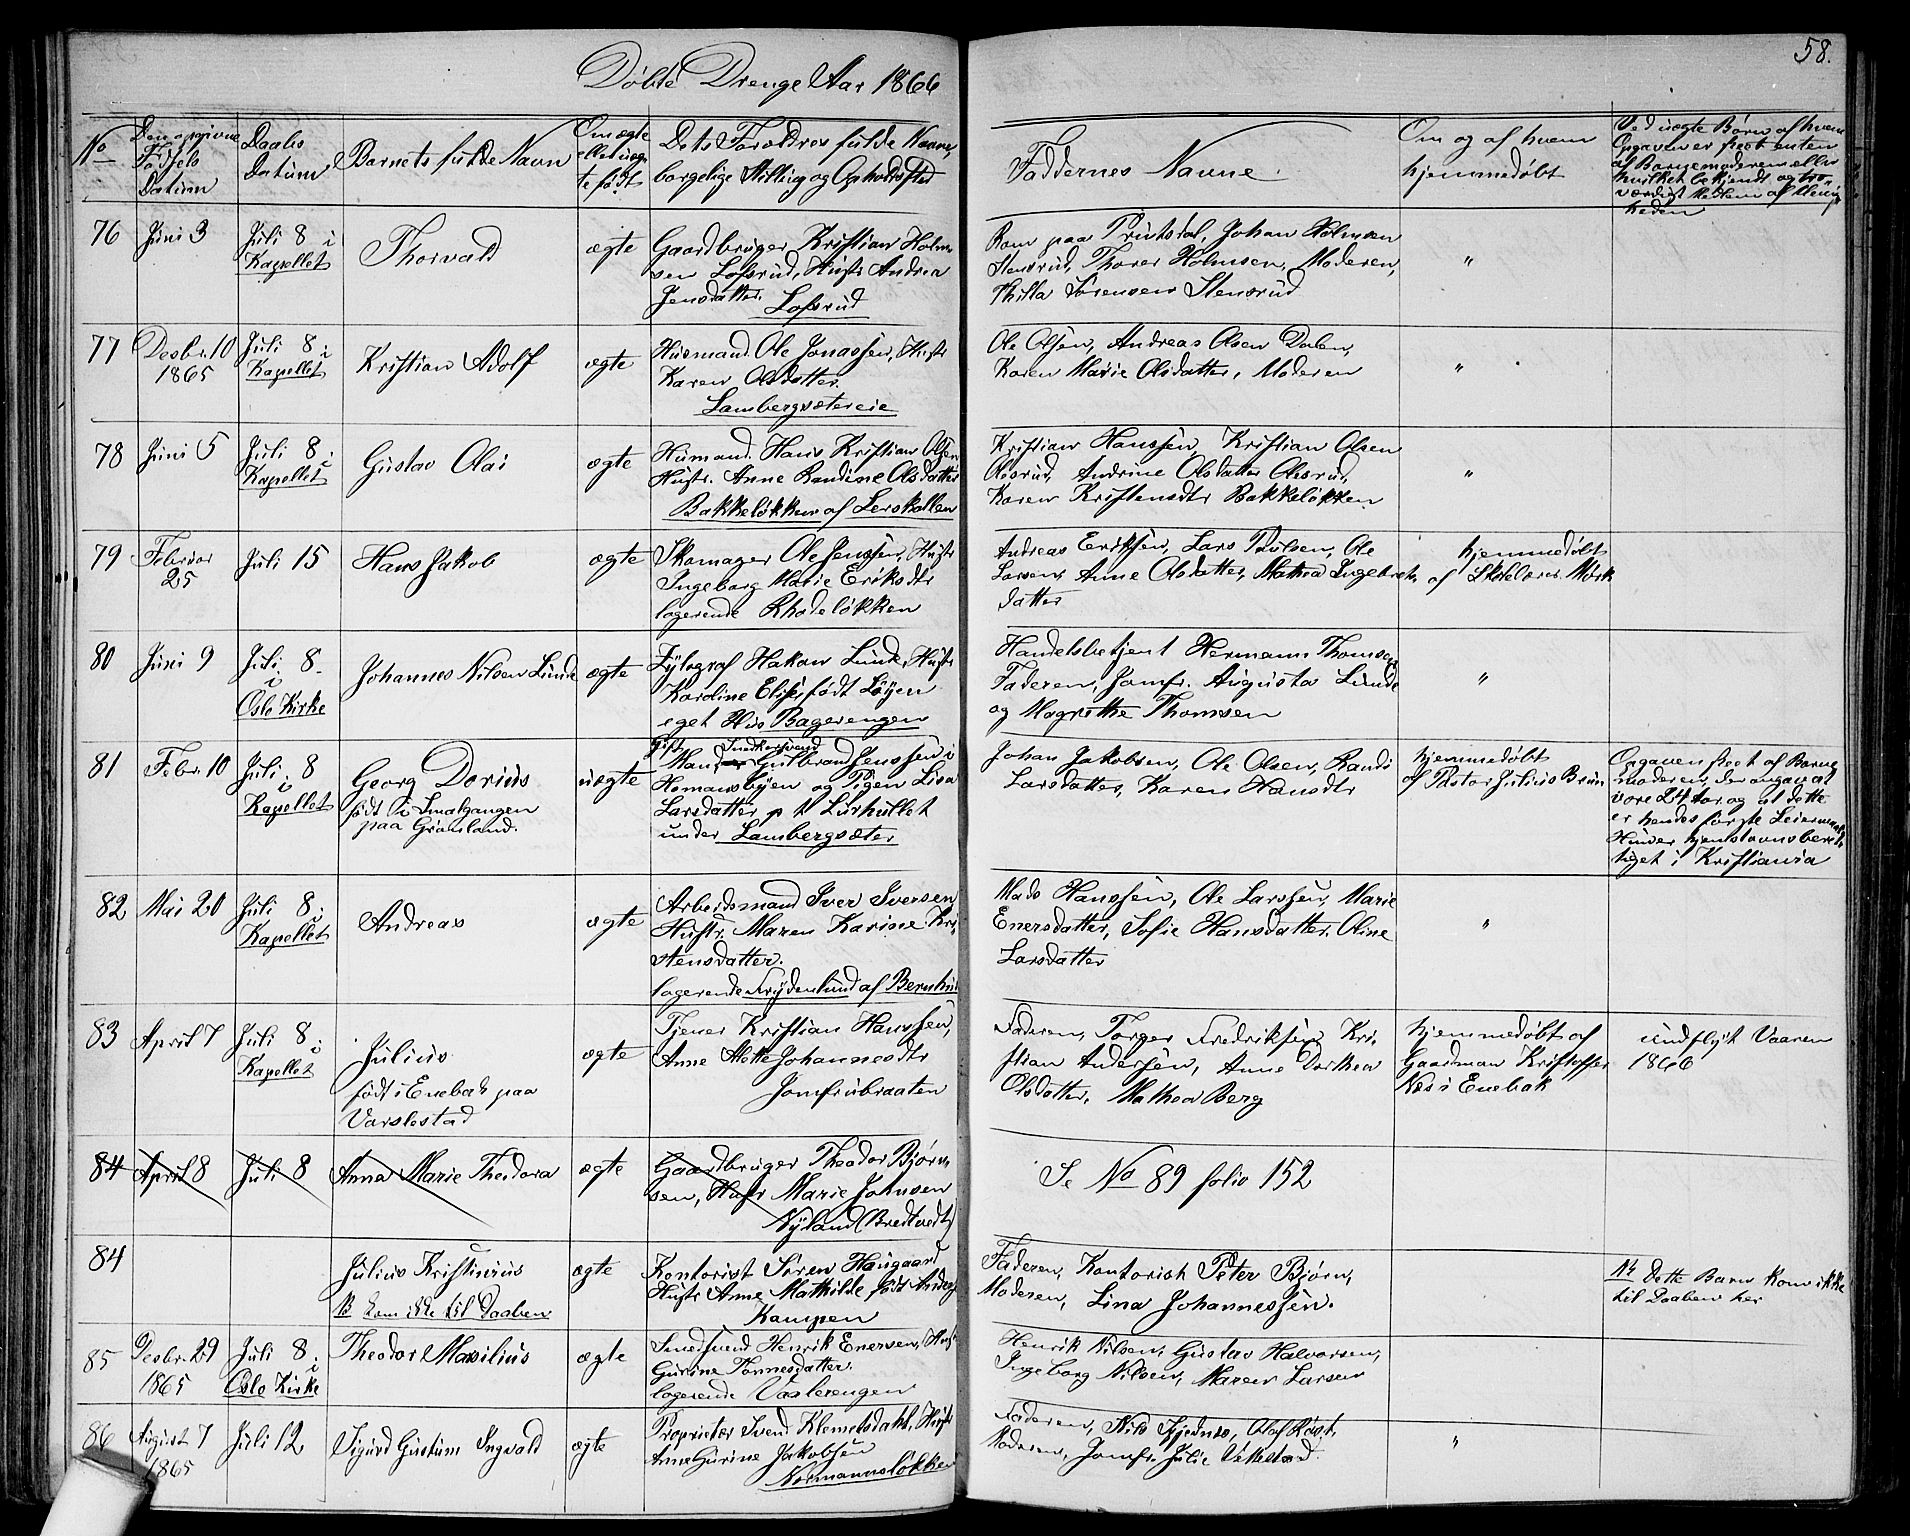 58.
Döbte Drenge Aar 1866
No
Den opgivne
Fødsels
Datum
Daabs
Datum
Barnets fulde Navn
Om ægte
eller uæg-
te født
Dets Forældres fulde Navne,
borgelige Stilling og Opholdssted
Faddernes Navne.
Om og af hvem
hjemmedøbt
Ved uægte Børn af hvem
Opgaven er skeet enten
af Barnemoderen eller
hvilket bekjendt og tro-
værdigt Medlem af Menig-
heden
76
Juni 3
Juli 8 i
Kapellet
Thorvald
ægte
Gaardbruger Kristian Holm-
sen Lofsrud, Hustr Andrea
Jensdatter. Lofsrud
Rom paa Prinsdal, Johan Holmsen
Stensrud, Thorer Holmsen, Moderen,
Thilla Sörensen Stensrud
"
77
Desbr. 10
1865
Juli 8 i
Kapellet
Kristian Adolf
ægte
Husmand Ole Jonassen, Hustr
Karen Olsdatter.
Lambergsætereie
Ole Olsen, Andreas Olsen Dalen,
Karen Marie Olsdatter, Moderen
"
78
Juni 5
Juli 8 i
Kapellet
Gustav Olai
ægte
Husmand. Hans Kristian Olsen
Hustr. Anne Randine Olsdatter
Bakkeløkken af Lerskallen
Kristian Hanssen, Kristian Olsen
Olesrud, Andrine Olsdatter Olesrud,
Karen Kristensdtr Bakkeløkken
"
79
Februar
25
Juli 15
Hans Jakob
ægte
Skomager Ole Jenssen, Hustr
Ingeborg Marie Eriksdtr
logerende Rhodeløkken
Andreas Eriksen, Lars Poulsen, Ole
Larsen, Anne Olsdatter, Mathea Ingebrets
datter
hjemmedøbt
af Skolelærer Mörk
80
Juni 9
Juli 8
i
Oslo Kirke
Johannes Nilsen Lunde
ægte
Xylograf Hakon Lunde, Hustr
Karoline Elise født Løyen
eget Hus Bagerengen
Handelsbetjent Hermann Thomsen
Faderen, Jomfr. Augusta Lunde
og Magrethe Thomsen
"
81
Febr. 10
Juli 8
i
Kapellet
Georg Dorius
født i Smalgangen
paa Grønland.
uægte
Gift Snedkersvend
Mand Gulbrand Jenssen i
Homansbyen og Pigen Lisa
Larsdatter p t Lurhullet
under Lambergsæter
Johan Jakobsen, Ole Olsen, Randi
Larsdatter, Karen Hansdtr
hjemmedøbt
af Pastor Julius Bruun
Opgaven skeet af Barne
moderen, der angav at
være 24 Aar og at dette
er hendes første Leiermaal
Hun er hjemstavnsberet-
tiget i Kristiania
82
Mai 20
Juli 8 i
Kapellet
Andreas
ægte
Arbeidsmand Iver Iversen
Hustr. Maren Karine Kri-
stensdatter.
logerende Frydenlund af Bernhus
Mads Hanssen, Ole Larssen, Marie
Enersdatter, Sofie Hansdatter, Oline
Larsdatter
"
83
April 7
Juli 8 i
Kapellet
Julius
født i Enebak paa
Varslestad
ægte
Tjener Kristian Hanssen,
Anne Mette Johannesdtr
Jomfrubraaten
Faderen, Torger Fredriksen, Kri-
stian Andersen, Anne Dorthea
Olsdatter, Mathea Berg
hjemmedøbt af
Gaardman Kristoffer
Næs i Enebak
indflyt Vaaren
1866
84
April 8
Juli 8
Anna Marie Theodora
ægte
Gaardbruger Theodor Bjørn-
sen, Hustr Marie Johnsen
Nyland (Bredtvedt)
Se No 89 folio 152
84
Julius Kristinius
NB kom ikke til Daaben
ægte
Kontorist Sören Haugaard
Hustr Anne Mathilde født Anders
Kampen
Faderen, Kontorist Peter Björn,
Moderen, Lina Johannessen.
NB Dette Barn kom ikke
til Daaben her
85
Desbr. 29
1865
Juli 8 i
Oslo Kirke
Theodor Maxilius
ægte
Smedsvend Henrik Enersen, Hus
Gurine Tonnesdatter
logerende Vaalerengen
Henrik Nilsen, Gustav Halvorsen,
Ingeborg Nilsen, Maren Larsen
86
August 7
1865
Juli 12
Sigurd Gustum Ingvald
ægte
Proprietær Svend Klemetsdahl, Hustr
Anne Gurine Jakobsen
Normannsløkken
Faderen, Nils Kjednes, Olaf Røst,
Moderen, Jomfr. Julie Vettestad.
"